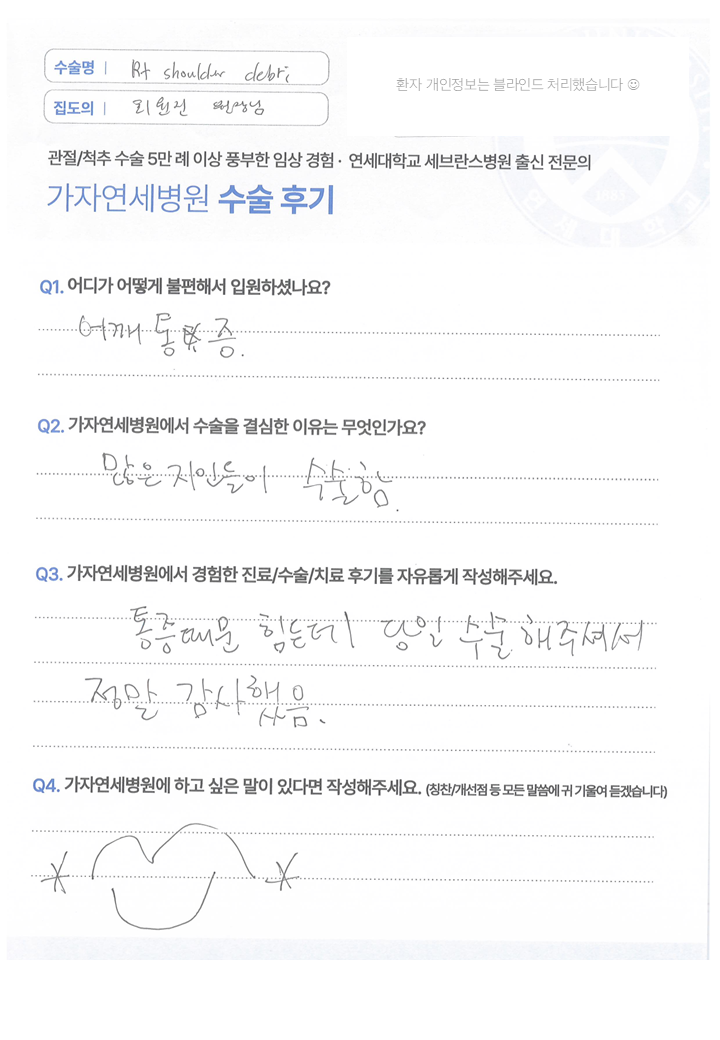 수술명 | Rt shoulder debri
환자 개인정보는 블라인드 처리했습니다 ☺
집도의 | 최원진 원장님
관절/척추 수술 5만 례 이상 풍부한 임상 경험 · 연세대학교 세브란스병원 출신 전문의
가자연세병원 수술 후기
Q1. 어디가 어떻게 불편해서 입원하셨나요?
어깨 통증.
Q2. 가자연세병원에서 수술을 결심한 이유는 무엇인가요?
많은 지인들이 수술함.
Q3. 가자연세병원에서 경험한 진료/수술/치료 후기를 자유롭게 작성해주세요.
통증때문 힘든데 당일 수술 해주셔서
정말 감사했음.
Q4. 가자연세병원에 하고 싶은 말이 있다면 작성해주세요. (칭찬/개선점 등 모든 말씀에 귀 기울여 듣겠습니다)